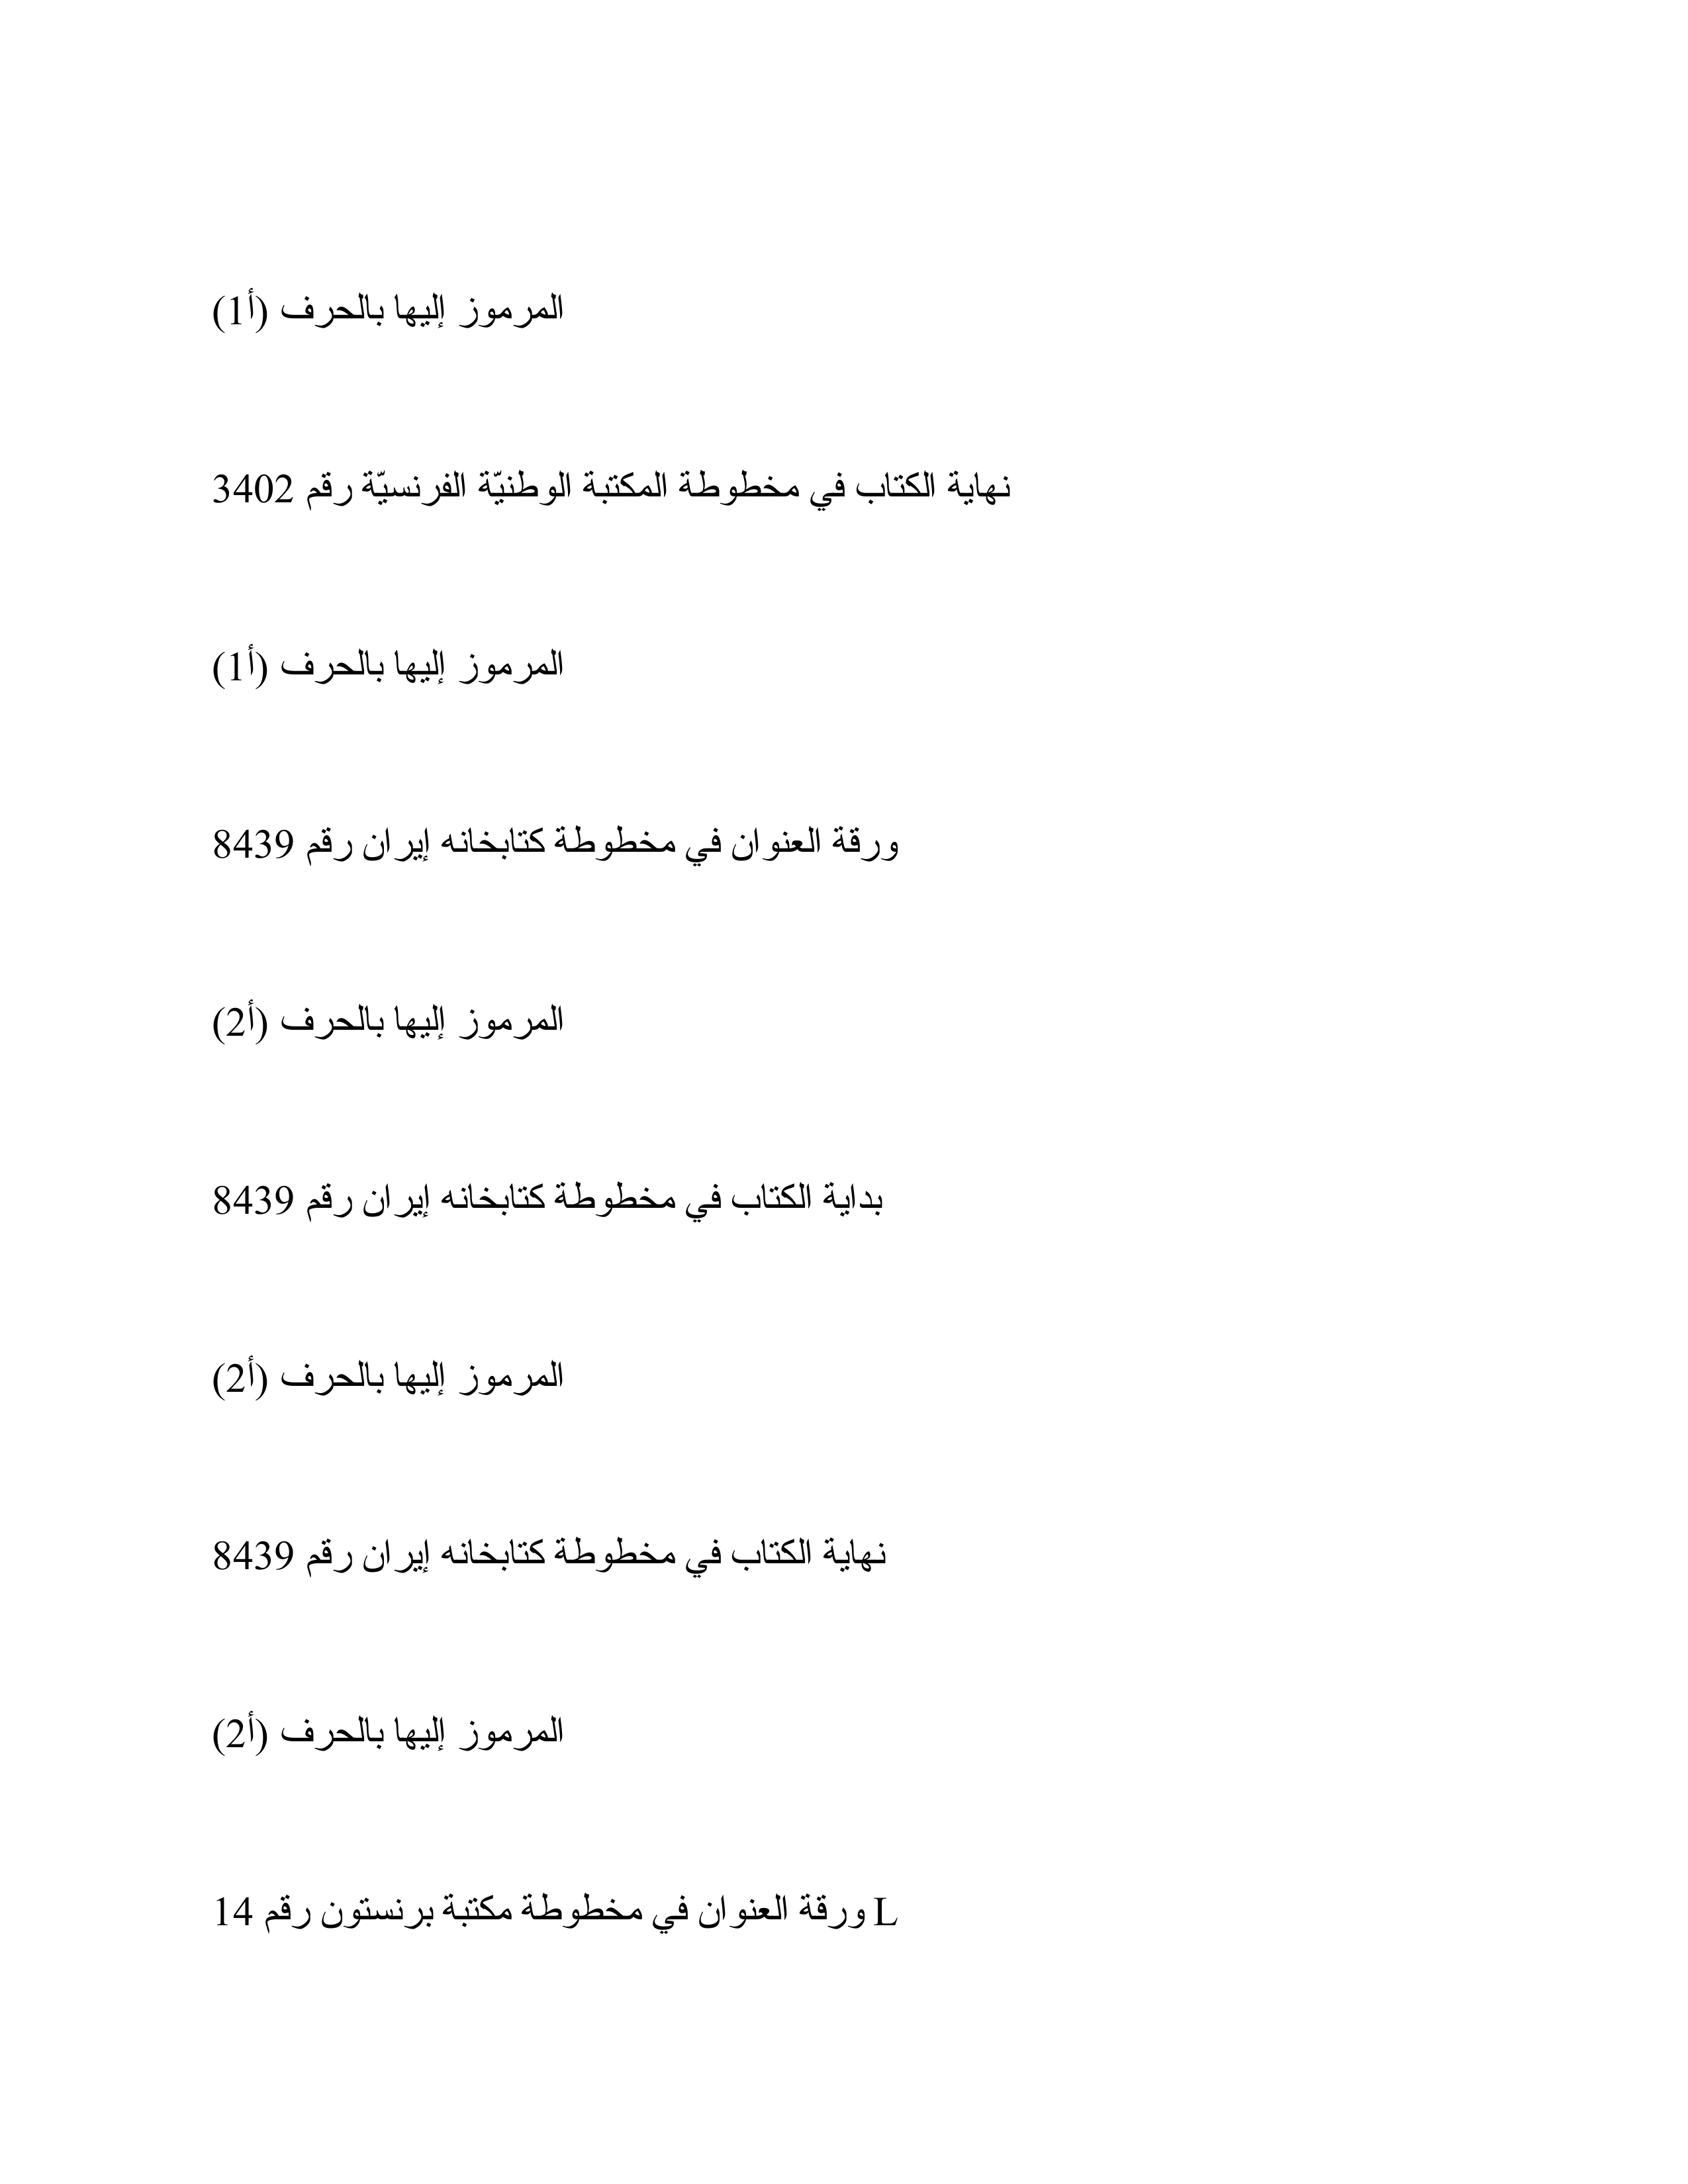 المرموز إليها بالحرف (أ1)
نهاية الكتاب في مخطوطة المكتبة الوطنيّة الفرنسيّة رقم 3402
المرموز إليها بالحرف (أ1)
ورقة العنوان في مخطوطة كتابخانه إيران رقم 8439
المرموز إليها بالحرف (أ2)
بداية الكتاب في مخطوطة كتابخانه إيران رقم 8439
المرموز إليها بالحرف (أ2)
نهاية الكتاب في مخطوطة كتابخانه إيران رقم 8439
المرموز إليها بالحرف (أ2)
L ورقة العنوان في مخطوطة مكتبة برنستون رقم 14